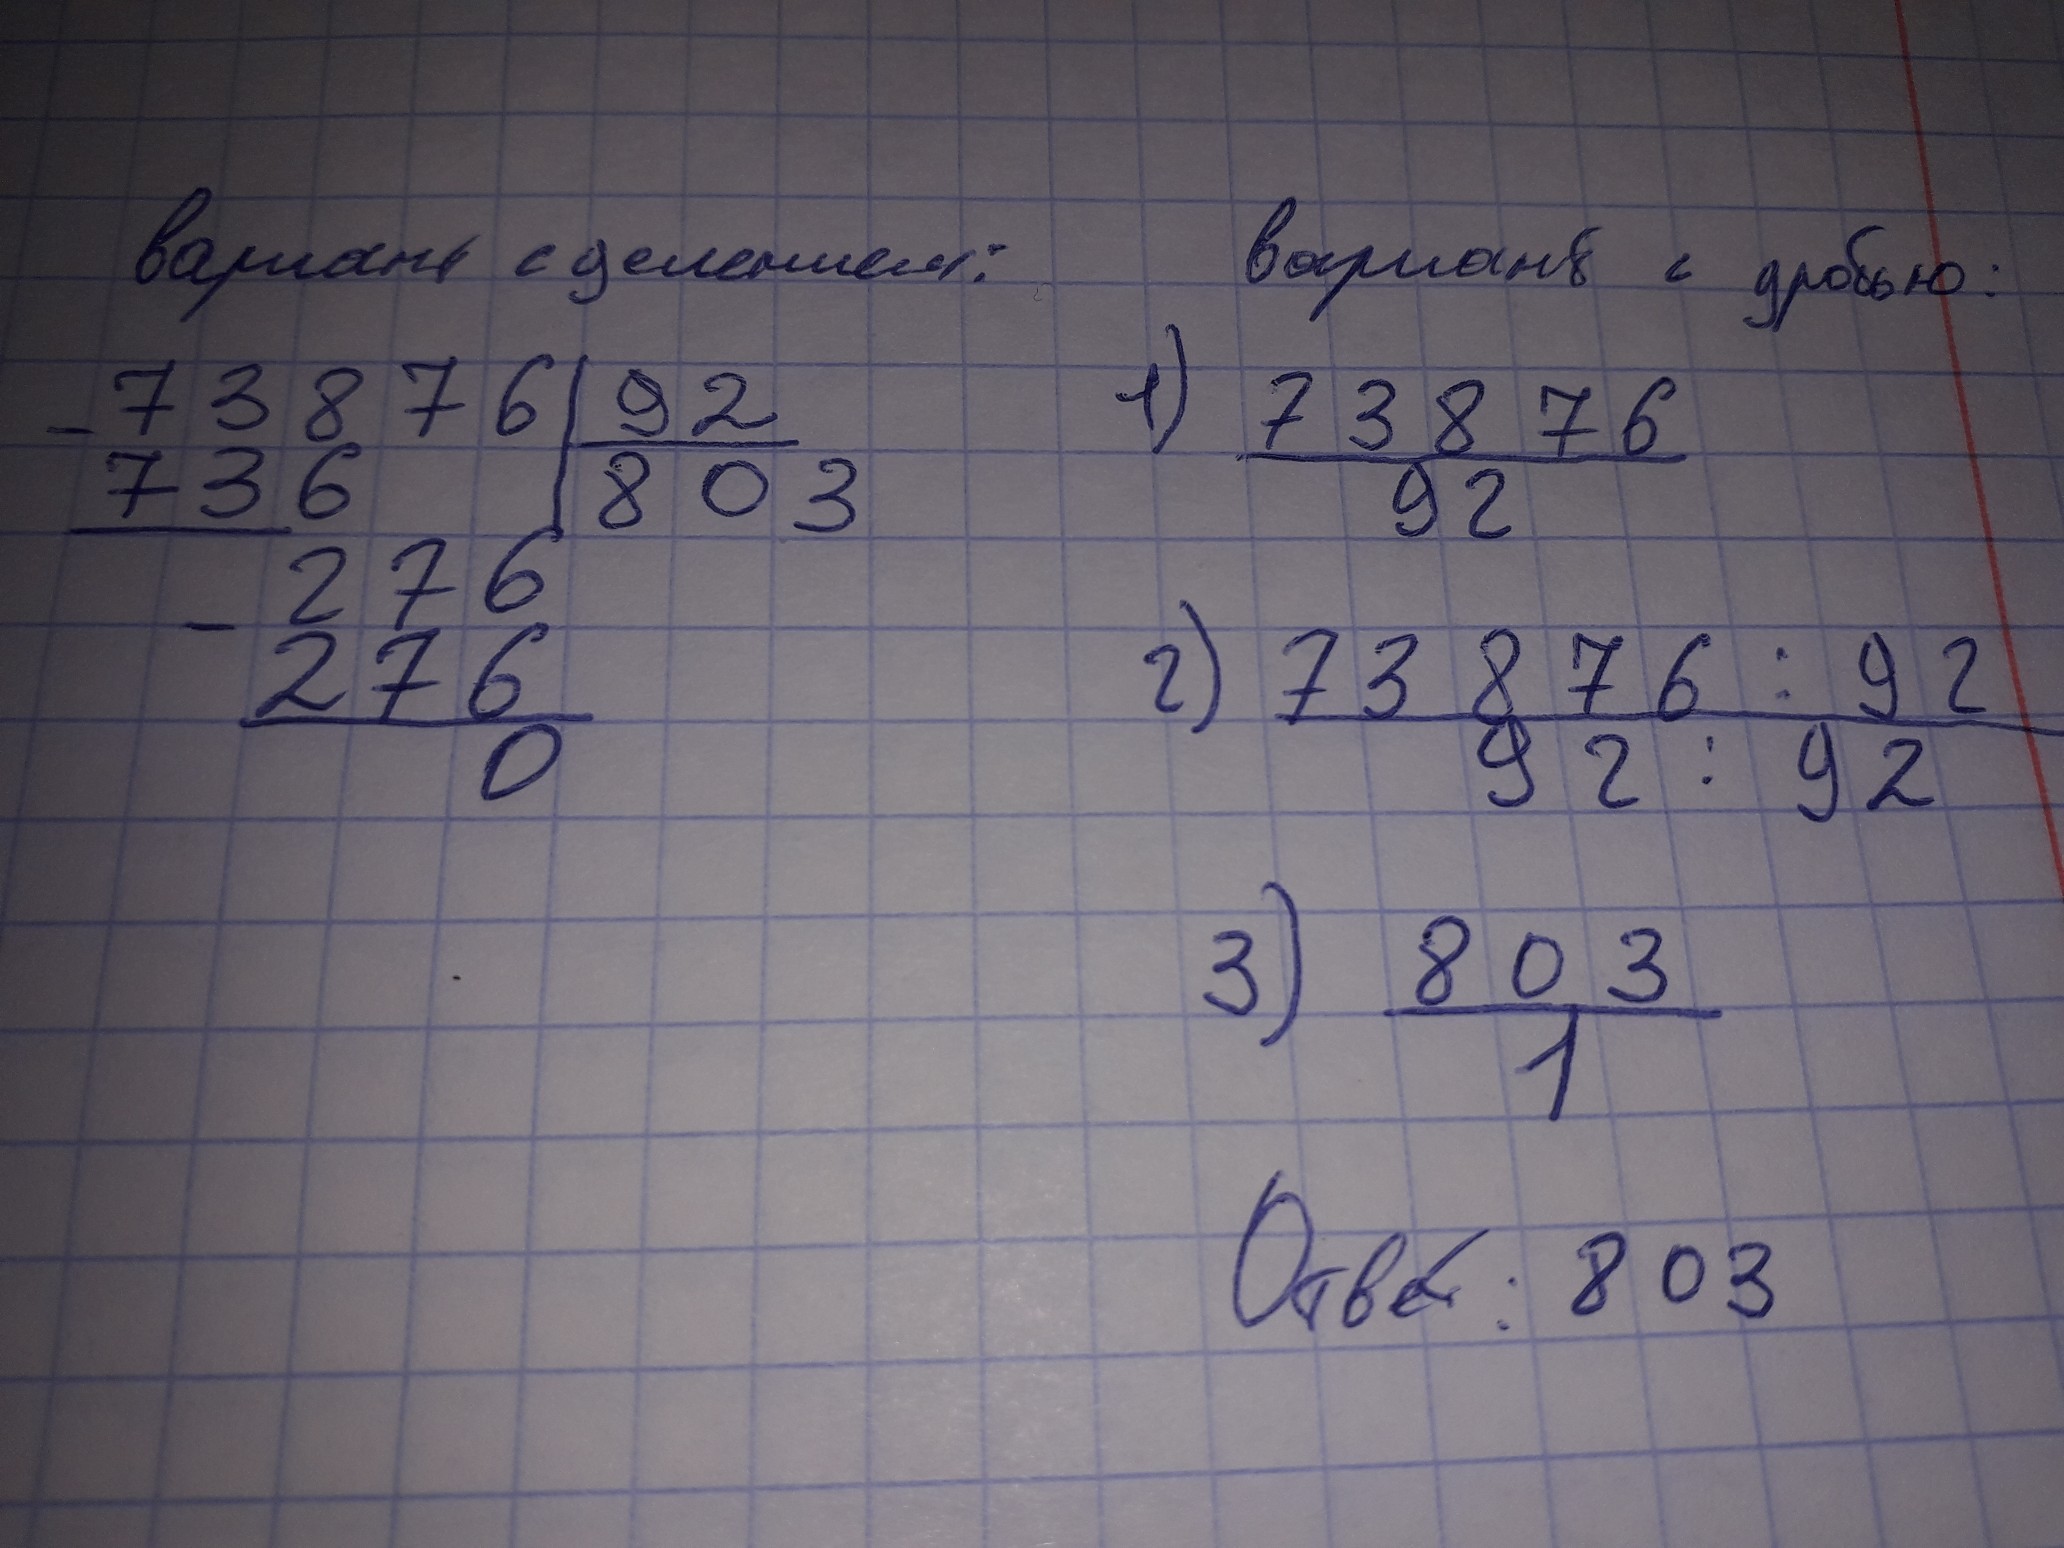 вариант с делением:
- 73876 | 92
736 | 803
- 276
276
0
вариант с дробью:
1) 73876
92
2) 73876 : 92
92 : 92
3) 803
1
Ответ: 803